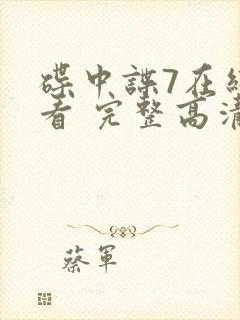 碟中諜7在線
看 完整高清
蔡軍